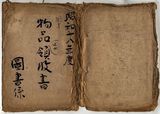 昭和十八年度
物品領收書
圖書係